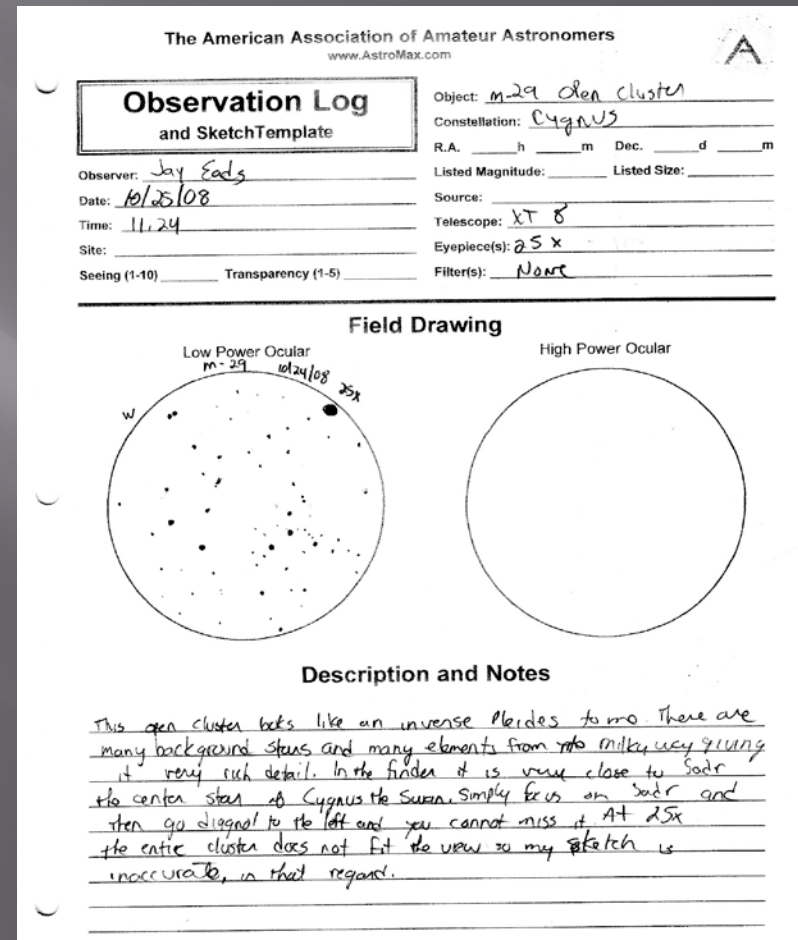 The American Association of Amateur Astronomers
www.AstroMax.com
A
Observation Log
and SketchTemplate
Observer: Jay Eads
Date: 10/25/08
Time: 11:24
Site:
Seeing (1-10) Transparency (1-5)
Object: M-29 Open Cluster
Constellation: Cygnus
R.A. h m Dec. d m
Listed Magnitude: Listed Size:
Source:
Telescope: XT 8
Eyepiece(s): 25x
Filter(s): None
Field Drawing
Low Power Ocular
m-29 10/24/08 25x
W
High Power Ocular
Description and Notes
This open cluster looks like an inverse Pleides to me. There are
many background stars and many elements from milky way giving
it very rich detail. In the finder it is very close to Sadr
the center star of Cygnus the Swan. Simply focus on Sadr and
then go diagnol to the left and you cannot miss it. At 25x
the entire cluster does not fit the view so my sketch is
inaccurate, in that regard.